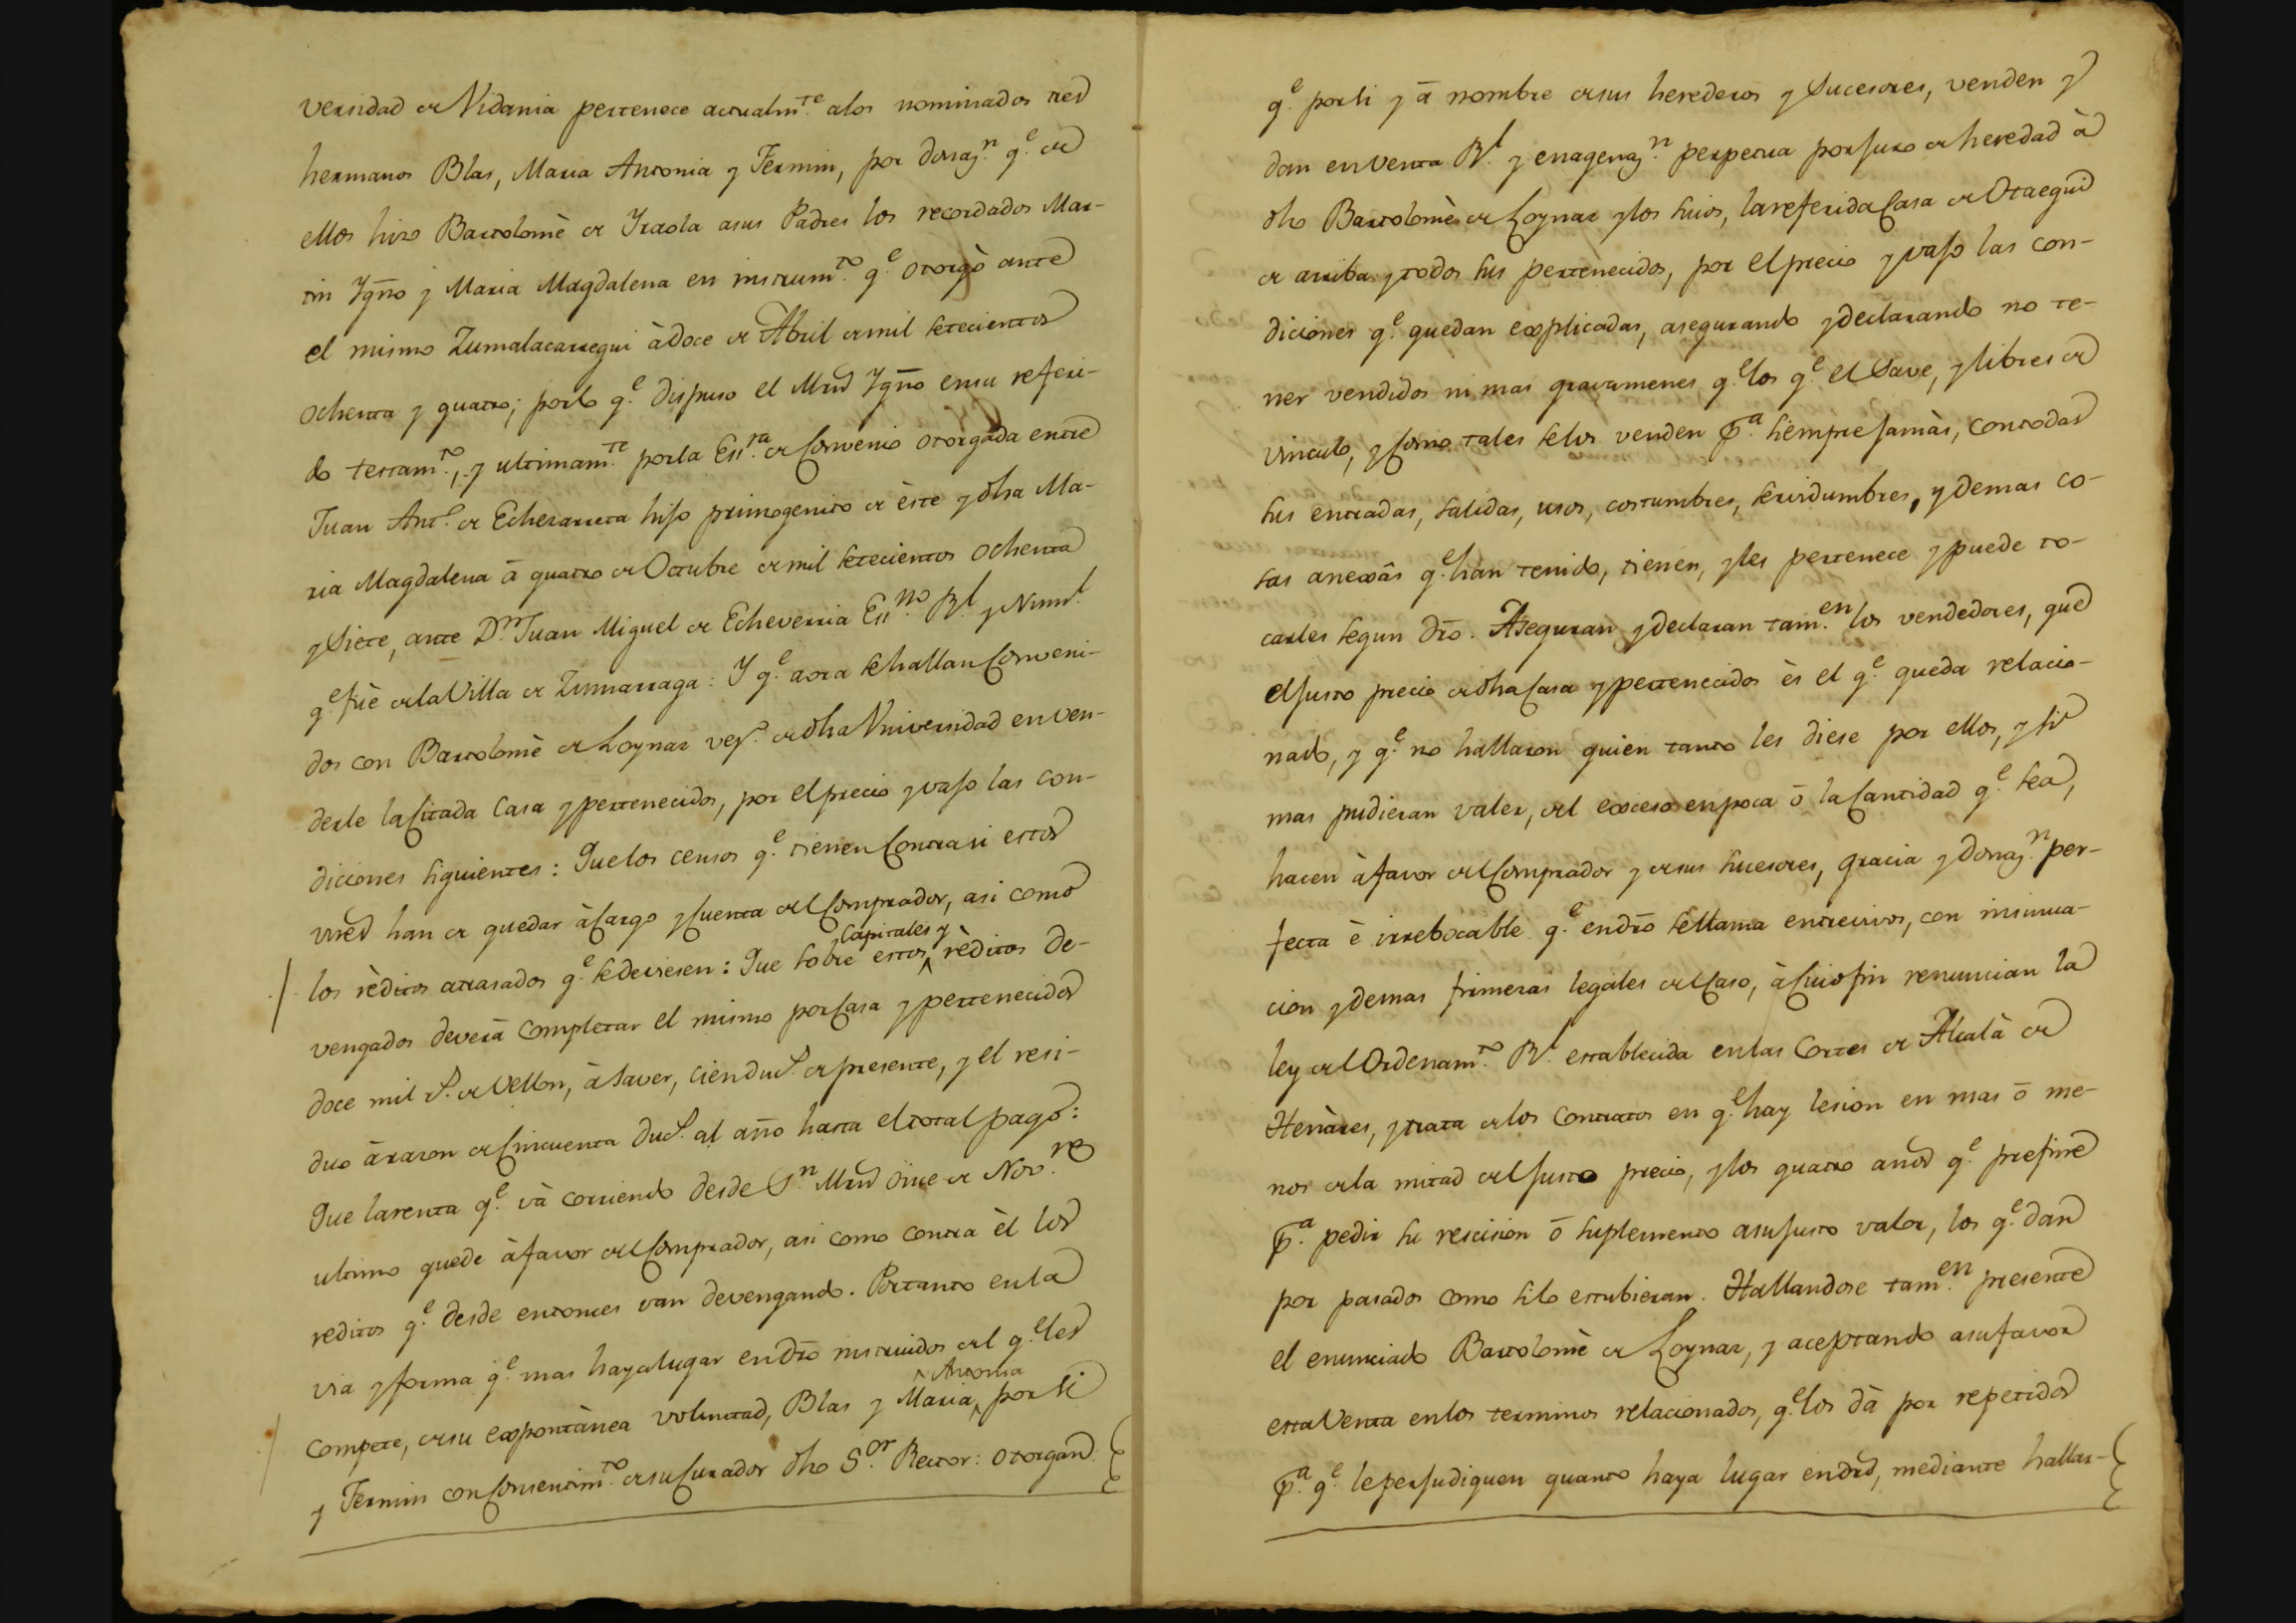 versidad de Vidania pertenece actualm.te alos nominados tres
hermanos Blas, Maria Antonia y Fermin, por donaz.n q.e de
ellos hizo Bartolomè de Iraola asus Padres los recordados Mar-
tin Ygn̄o y Maria Magdalena en instrum.to q.e otorgò ante
el mismo Zumalacarregui à doce de Abril de mil setecientos
ochenta y quatro; porlo q.e dispuso el Mrn̄ Ygn̄o ensu referi-
do testam.to, y ultimam.te porla Ess.ra de Convenio otorgada entre
Juan Ant.o de Echezarreta hijo primogenito de èste y dha Ma-
ria Magdalena à quatro de Octubre de mil setecientos ochenta
y Siete, ante D.n Juan Miguel de Echeverria Ess.no R.l y Num.l
q.e fuè dela Villa de Zumarraga: Y q.e aora se hallan Conveni-
dos con Bartolomè de Loynaz vez.o de dha Vniversidad en ven-
derle la Citada Casa y pertenecidos, por el precio y vajo las con-
diciones siguientes: Que los censos q.e tienen Contra si estos
vnes han de quedar à Cargo y Cuenta del Comprador, asi como
los rèditos atrasados q.e se deviesen: Que sobre estos capitales y rèditos de-
vengados deverà completar el mismo por Casa y pertenecidos
doce mil r.s de Vellon, à saver, cien duc.s de presente, y el resi-
duo à razon de Cincuenta duc.s al año hasta el total pago:
Que la renta q.e và corriendo desde S.n Mrn̄ once de Nov.re
ultimo quede à favor del Comprador, asi como contra èl los
reditos q.e desde entonces van devengando. Portanto en la
via y forma q.e mas haya lugar en dr̄o instruidos del q.e les
compete, de su expontànea voluntad, Blas y Maria Antonia por si
y Fermin con Consentim.to de su Curador dho S.or Rector: otorgan
q.e por si y à nombre de sus herederos y Sucesores, venden y
dan en Venta R.l y enagenaz.n perpetua por juro de heredad à
dho Bartolomè de Loynaz y los suios, la referida Casa de Otaegui
de arriba y todos sus pertenecidos, por el precio y vajo las con-
diciones q.e quedan explicadas, asegurando y declarando no te-
ner vendidos ni mas gravamenes q.e los q.e el Save, y libres de
vinculo, y Como tales selos venden p.a siempre jamàs, con todas
sus entradas, salidas, usos, costumbres, servidumbres, y demas co-
sas anexàs q.e han tenido, tienen, y les pertenece y puede to-
carles segun dr̄o. Aseguran y declaran tam.en los vendedores, que
el justo precio de dha Casa y pertenecidos ès el q.e queda relacio-
nado, y q.e no hallaron quien tanto les diese por ellos, y si
mas pudieran valer, del exceso en poca ō la Cantidad q.e sea,
hacen à favor del Comprador y de sus sucesores, gracia y donaz.n per-
fecta è irrebocable q.e en dr̄o se llama entrevivos, con insinua-
cion y demas firmezas legales del Caso, à Cuio fin renuncian la
ley del Ordenam.to R.l establecida en las Cortes de Alcalà de
Henàres, y trata de los Contratos en q.e hay lesion en mas ō me-
nos de la mitad del justo precio, y los quatro años q.e prefine
p.a pedir su rescision ō suplemento asu justo valor, los q.e dan
por pasados como si lo estubieran. Hallandose tam.en presente
el enunciado Bartolomè de Loynaz, y aceptando asu favor
esta Venta en los terminos relacionados, q.e los dà por repetidos
p.a q.e le perjudiquen quanto haya lugar en dr̄o, mediante hallar-